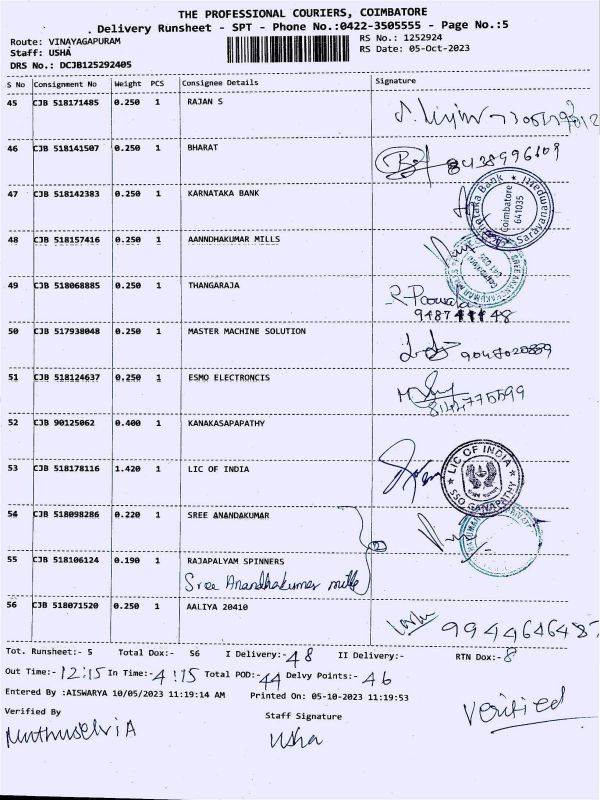 THE PROFESSIONAL COURIERS, COIMBATORE
Delivery Runsheet - SPT - Phone No.:0422-3505555 - Page No.:5
Route: VINAYAGAPURAM RS No.: 1252924
Staff: USHA RS Date: 05-Oct-2023
DRS No.: DCJB125292405
S No Consignment No Weight PCS Consignee Details Signature
45 CJB 518171485 0.250 1 RAJAN S
46 CJB 518141507 0.250 1 BHARAT 8428996109
47 CJB 518142383 0.250 1 KARNATAKA BANK
Karnataka Bank Saravanampatti Coimbatore 641035
48 CJB 518157416 0.250 1 AANNDHAKUMAR MILLS
49 CJB 518068885 0.250 1 THANGARAJA
50 CJB 517938048 0.250 1 MASTER MACHINE SOLUTION
51 CJB 518124637 0.250 1 ESMO ELECTRONCIS
52 CJB 90125062 0.400 1 KANAKASAPAPATHY
53 CJB 518178116 1.420 1 LIC OF INDIA
LIC OF INDIA SSO GANAPATHY
54 CJB 518098286 0.220 1 SREE ANANDAKUMAR
55 CJB 518106124 0.190 1 RAJAPALYAM SPINNERS
Sree Anandhakumar mills
56 CJB 518071520 0.250 1 AALIYA 20410 9944646487
Tot. Runsheet:- 5 Total Dox:- 56 I Delivery:- 48 II Delivery:- RTN Dox:- 8
Out Time:- 12:15 In Time:- 4:15 Total POD:- 44 Delvy Points:- 46
Entered By :AISWARYA 10/05/2023 11:19:14 AM Printed On: 05-10-2023 11:19:53
Verified By Staff Signature Verified
MuthuselviA Usha